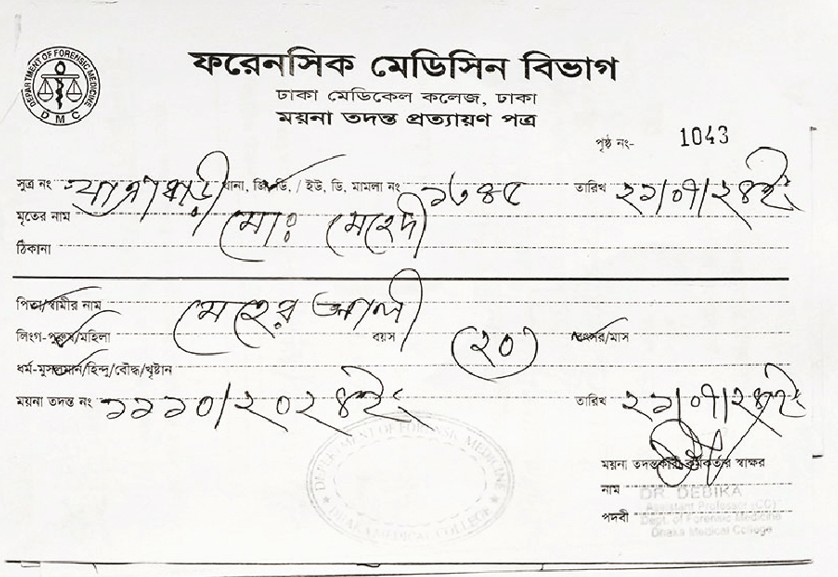 DEPARTMENT OF FORENSIC MEDICINE
DMC
ফরেনসিক মেডিসিন বিভাগ
ঢাকা মেডিকেল কলেজ, ঢাকা
ময়না তদন্ত প্রত্যায়ণ পত্র
পৃষ্ঠ নং- 1043
সুত্র নং যাত্রাবাড়ী থানা, জি, ডি, / ইউ, ডি, মামলা নং ১৬৪৫ তারিখ ২১/০৭/২৪ইং
মৃতের নাম মোঃ মেহেদী
ঠিকানা
পিতা/স্বামীর নাম মেহের আলী
লিংগ-পুরুষ/মহিলা বয়স (২০) বৎসর/মাস
ধর্ম-মুসলমান/হিন্দু/বৌদ্ধ/খৃষ্টান
ময়না তদন্ত নং ১১১০/২০২৪ইং তারিখ ২১/০৭/২৪ইং
DEPARTMENT OF FORENSIC MEDICINE
DHAKA MEDICAL COLLEGE
ময়না তদন্তকারী কর্মকর্তার স্বাক্ষর
নাম DR DEBIKA
Assistant Professor (CC)
পদবী Dept. of Forensic Medicine
Dhaka Medical College